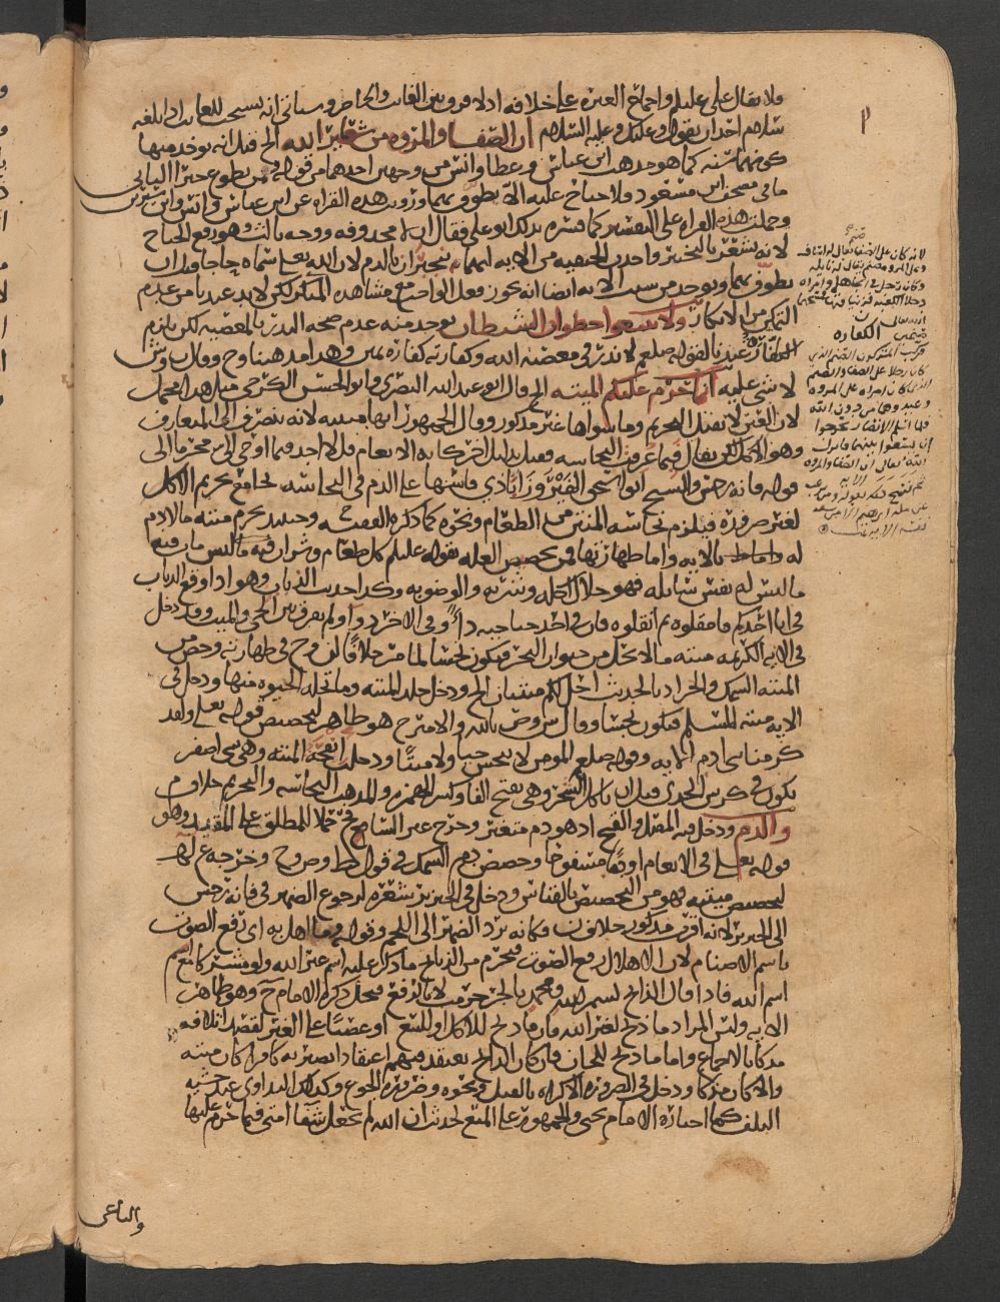 ولا يقال على عليل واجماع العتره على خلافه اذ لا فرق بين الغائب والحاضر وسيأتي انه يستحب للغائب اذا بلغه
سلامهم احد ان يقول وعليك وعليه السلام ان الصفا والمروه من شعائر الله الخ قيل انه يوخذ منها
كونهما سنه كما هو مذهب ابن عباس وعطا وانس من وجهين احدهما من قوله فمن تطوع خيرا الثاني
ما في مصحف ابن مسعود ولا جناح عليه الا يطوف بهما ورويت هذه القراه عن ابن عباس وانس وابن سيرين
وحملت هذه القراه على التفسير كما فسره بذلك ابو علي فقال ان لا محذوفه ووجه ثالث وهو رفع الجناح
لانه يشعر بالتخيير واخذ الحنفيه من الايه انهما يجبران بالدم لان الله تعالى سماه حاجا قبل ان
يطوف بهما ويوخذ من سبب الايه ايضا انه يجوز فعل الواجب مع مشاهده المنكر لكن لا بد عندنا من عدم
التمكن من الانكار ولا تتبعوا خطوات الشيطان يوخذ منه عدم صحه النذر بالمعصيه لكن يلزم
الكفاره عندنا لقوله صلعم لا نذر في معصيه الله وكفارته كفاره يمين وهذا مذهبنا وح وقال وش
لا شي عليه انما حرم عليكم الميته الخ قال ابو عبد الله البصري وابو الحسن الكرخي مثل هذا مجمل
لان العين لا تقبل التحريم وما سواها غير مذكور وقال الجمهور انها مبينه لانه ينصرف الى المتعارف
وهو الاكل لكن يقال فيما عرفت النجاسه فقيل بدليل اخر كآيه الانعام قل لا اجد فيما اوحي الي محرما الى
قوله فانه رجس والشيخ ابو يحيى القبري وزاباذي قاسها على الدم في النجاسه بجامع تحريم الاكل
لغير ضروره فيلزم نجاسه المنتن من الطعام ونحوه كما ذكره الفقيه ح وحينئذ يحرم ميته ما لا دم
له بالايه واما طهارتها فمن تخصيص العله بقوله عليلم كل طعام وشراب فيه ما ليس مات فيه
ما ليس له نفس سائله فهو حلال اكله وشربه والوضو به وكذا حديث الذباب وهو اذا وقع الذباب
في انا احدكم فامقلوه ثم انقلوه فان في احد جناحيه داءً وفي الاخر دواء ولم يفرق بين الحي والميت وقد دخل
في الايه الكريمه ميته ما لا يحل من حيوان البحر فيكون نجسا لما مر خلافا لق وح في طهارته وخص من
الميته السمك والجراد بالحديث احل لكم ميتتان الخ ودخل جلد الميته وما تحله الحيوه منها ودخل في
الايه ميته المسلم فتكون نجسا وقال س وص بالله والامير ح هو طاهر لتخصيص قوله تعالى ولقد
كرمنا بني ادم الايه وقوله صلعم المومن لا ينجس حيا ولا ميتا ودخلت انفحه الميته وهي شي اصفر
يكون في كرش الجدي قبل ان ياكل الشجر وهي بفتح الفا وكسر الهمزه والمذهب النجاسه والتحريم خلاف م
والدم ودخل فيه المصل والقيح اذ هو دم متغير وخرج غير السافح ح حملا للمطلق على المقيد وهو
قوله تعالى في الانعام او دما مسفوحا وخصص دم السمك في قول ط وص وح وخرجه ع له
لتخصيص ميتته فهو من التخصيص بالقياس ودخل في الخنزير شعره لرجوع الضمير في فانه رجس
الى الخنزير لانه اقرب مذكور خلاف ن فكانه يرد الضمير الى اللحم وقوله وما اهل به اي رفع الصوت
باسم الاصنام لان الاهلال رفع الصوت فيحرم من الذبائح ما ذكر عليه اسم غير الله ولو مشتركا مع اسم
اسم الله فاذا قال الذابح بسم الله ومحمد بالجر حرمت لا بالرفع فيحل ذكره الامام ح وهو ظاهر
الايه وليس المراد ما ذبح لغير الله فان ما ذبح للاكل او للبيع او غصبا على الغير لقصد اتلافه
مذكا بالاجماع واما ما ذبح للجان فان كان الذابح يعتقد فيهم اعتقادا يصير به كافرا كان ميته
والا كان مذكا ودخل في الضروره الاكراه بالقتل ونحوه وضروره الجوع وكذلك التداوي عند خشيه
التلف كما اختاره الامام يحيى والجمهور على المنع لحديث ان الله لم يجعل شفا امتي فيما حرم عليها
والباغي
لانه كان على الصفا صنم يقال له اساف
وعلى المروه صنم يقال له نائله
وكانا رجل في الجاهليه وامراه
دخلا الكعبه فزنيا فيها فمسخهما
الله تعالى
الكفاره
فركب المشركون الصنم الذي
كان رجلا على الصفا والصنم
الذي كان امراه على المروه
وعبدوهما من دون الله
فلما اسلم الانصار تحرجوا
ان يسعوا بينهما فانزل
الله تعالى ان الصفا والمروه
الايه